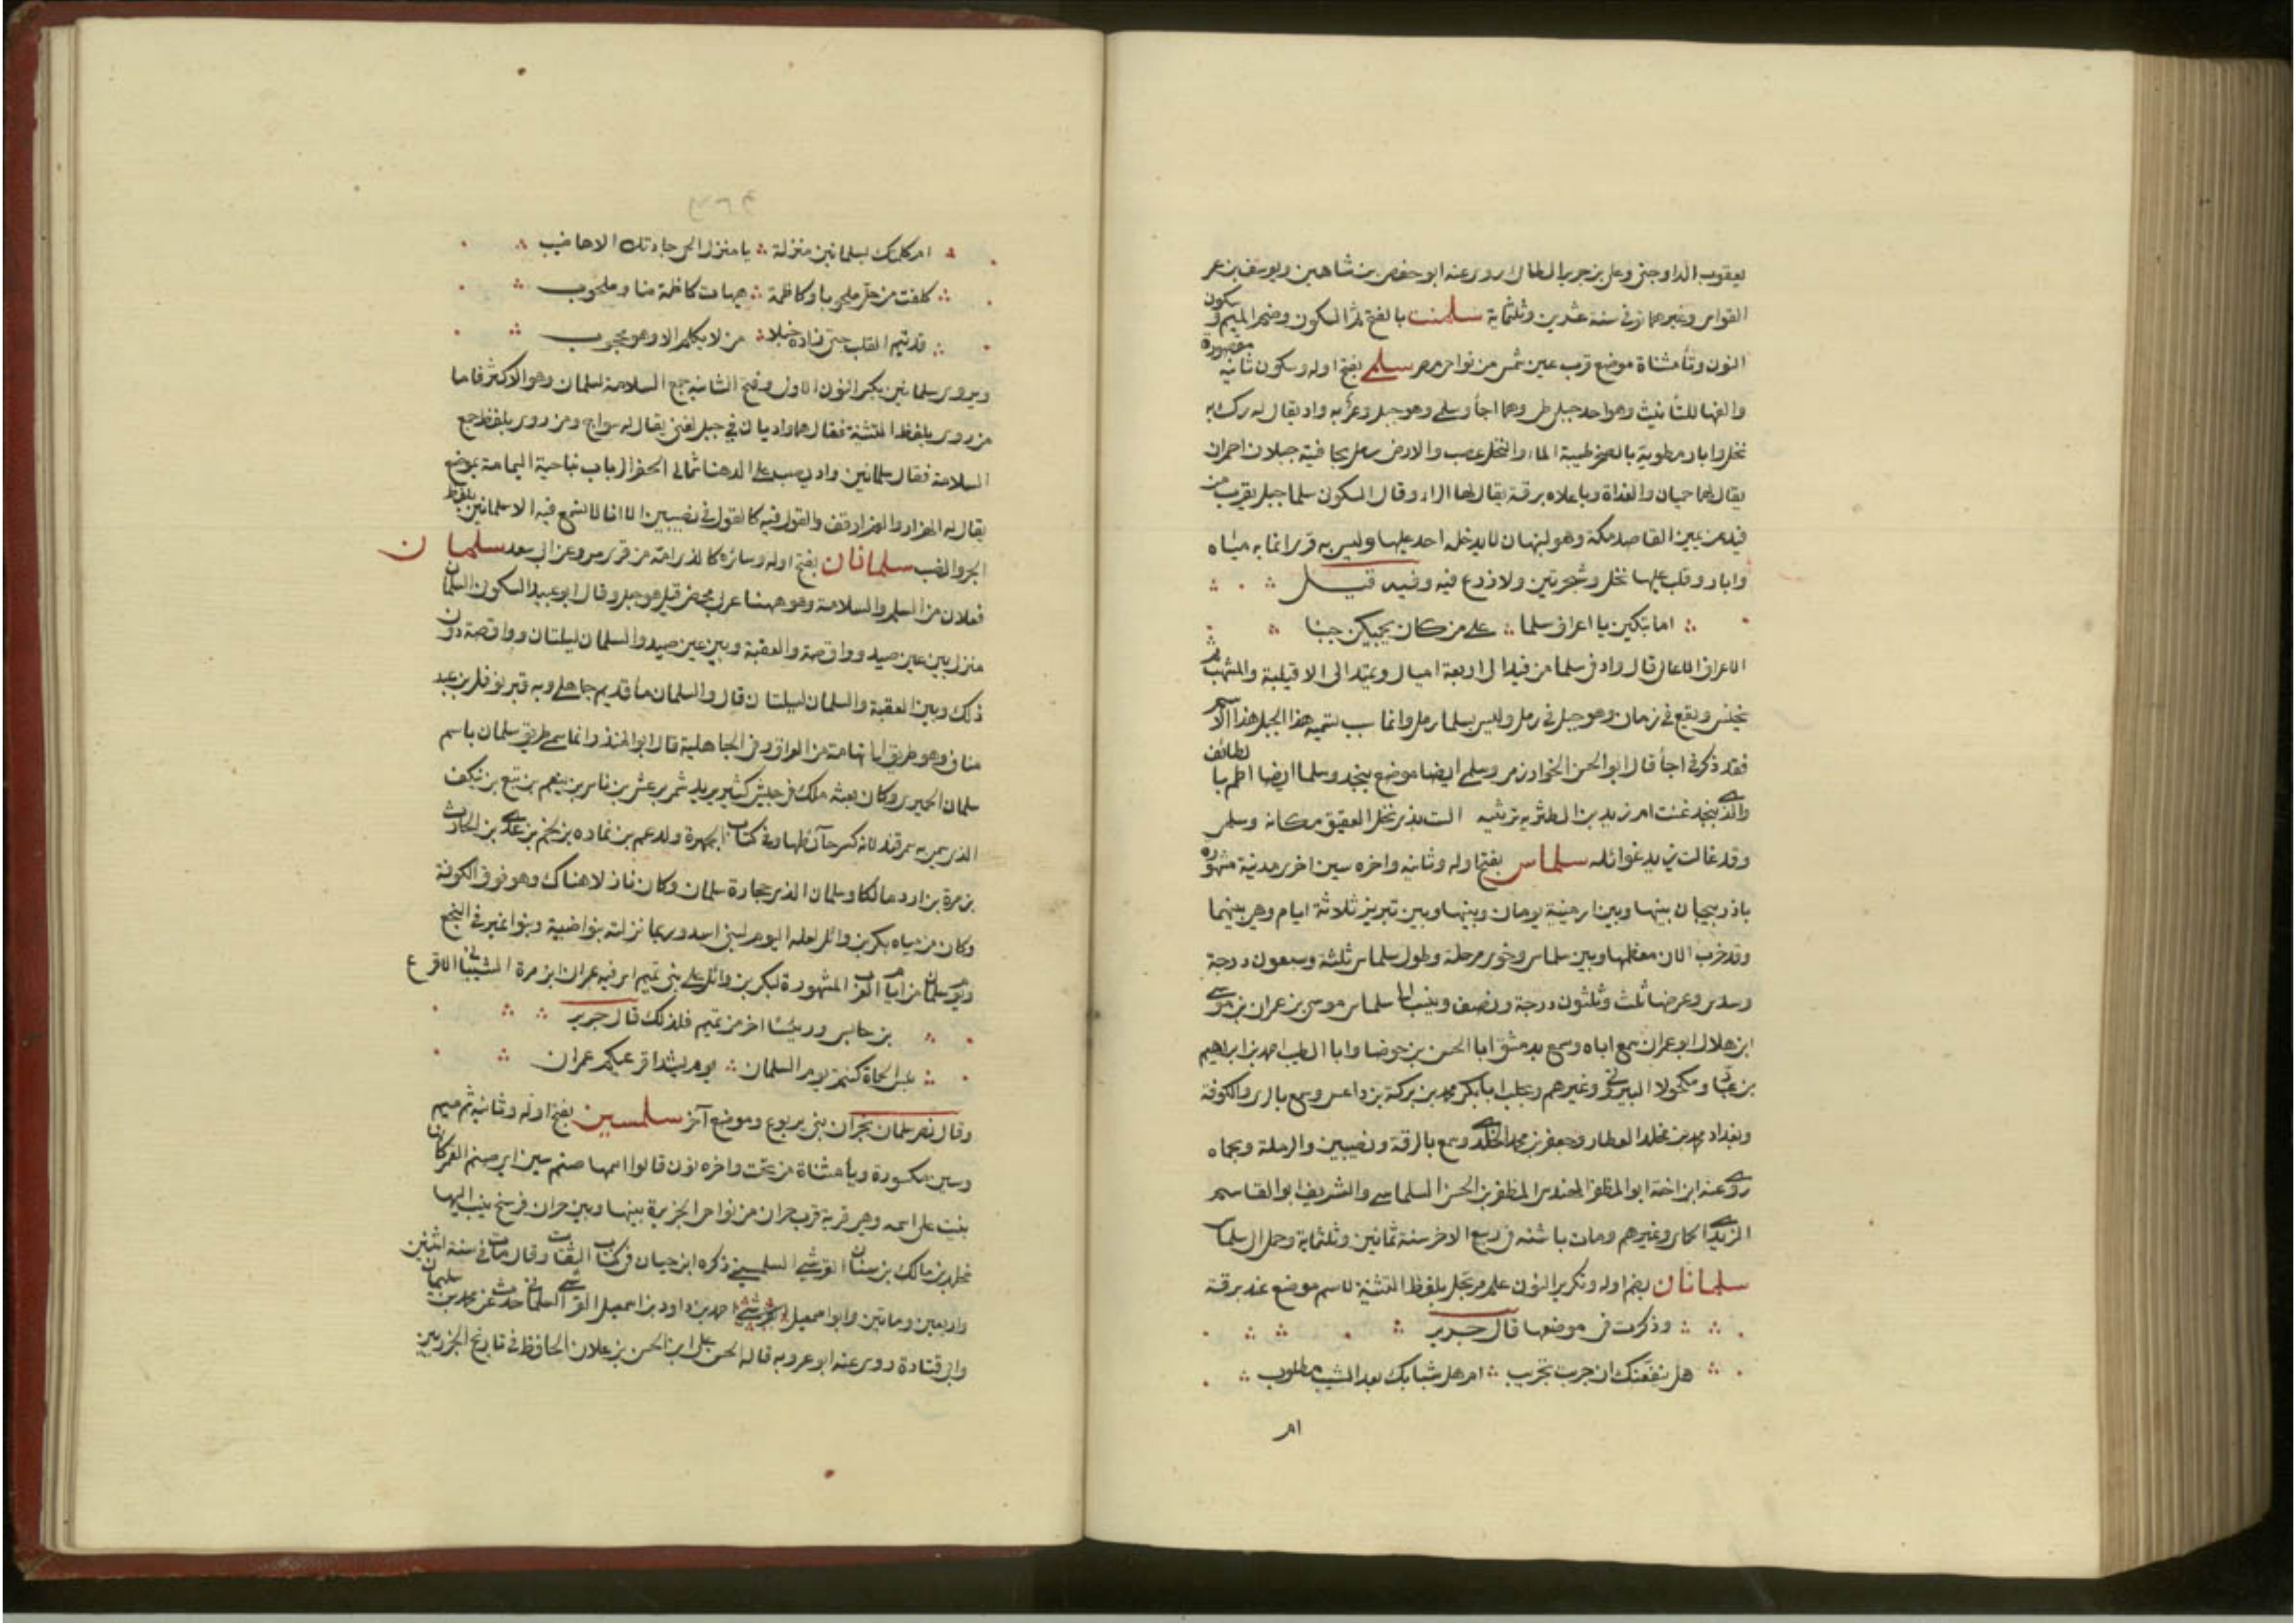 يعقوب الداوجني وعلي بن حرب الطائي روى عنه ابو حفص بن شاهين ويوسف بن عمر
القواس وغيرهما توفي سنة عشرين وثلثماية سلمنت بالفتح ثم السكون وضم الميم وسكون
النون وتا مثناة موضع قرب عين شمس من نواحي مصر سلمى بفتح اوله وسكون ثانيه مقصورة
والفها للتأنيث وهو احد جبلي طي وهما اجأ وسلمى وهو جبل وعر به واد يقال له رك به
نخل وابار مطوية بالصخر طيبة الماء والنخل عصب والارض رمل بحافتيه جبلان احمران
يقال لهما حميان والغداة وباعلاه برقة يقال لها السراء وقال السكوني سلما جبل بقرب من
فيد عن يمين القاصد مكة وهو لنبهان لا يدخله احد عليها وليس به قرى انما به مياه
وابار وقلب عليها نخل وشجر تين ولا زرع فيه وفيه قيل
اما تبكين يا اعراف سلما على من كان يحميكن حينا
الاعراف الاعالي قال وادنى سلما من فيد الى اربعة اميال ويمتد الى الاقيلبة والمنتهب ثم
يخنس ويقع في رمان وهو جبل في رمل وليس بسلما رمل وانما سبب تسميته هذا الجبل هذا الاسم
فقد ذكر في اجأ قال ابو الحسن الخوارزمي وسلمى ايضا موضع بنجد وسلما ايضا اطم بالطائف
والذي بنجد عنت ام يزيد بن الطثرية ترثيه الست بذي نخل العقيق مكانه وسلمى
وقد غالت يزيد غوائله سلماس بفتح اوله وثانيه واخره سين اخرى مدينة مشهورة
باذربيجان بينها وبين ارمية يومان وبينها وبين تبريز ثلاثة ايام وهي بينهما
وقد خرب الان معظمها وبين سلماس وخوي مرحلة وطول سلماس ثلثة وسبعون درجة
وسدس وعرضها ثلث وثلثون درجة ونصف وينسب الى سلماس موسى بن عمران بن موسى
ابن هلال ابو عمران سمع اباه وسمع بدمشق ابا الحسن بن جوصا وابا الطيب احمد بن ابراهيم
بن عبادي ومكحولا البيروتي وغيرهم وبحلب ابا بكر محمد بن بركة بن داعس وسمع بالري والكوفة
وبغداد محمد بن مخلد العطار وجعفر بن محمد الخلدي وسمع بالرقة ونصيبين والرملة وبحماه
روى عنه ابن اخته ابو المظفر المهند بن المظفر بن الحسن السلماسي والشريف ابو القاسم
الزيدي الحاي وغيرهم ومات باشنه في ربيع الاخر سنة ثمانين وثلثماية وحمل الى سلماس
سلمانان بضم اوله وتكرير النون علم مرتجل بلفظ التثنية لاسم موضع عند برقة
وذكرت في موضعها قال جرير
هل ينفعنك ان جربت تجريب ام هل شبابك بعد الشيب مطلوب
ام
ام كلمتك بسلمانين منزلة يا منزل الحي جادتك الاهاضيب
كلفت من حل ملحوبا وكاظمة هيهات كاظمة منا وملحوب
قد تيم القلب حتى زاده خبلا من لا يكلم الا وهو محجوب
ويروى سلمانين بكسر النون الاول وفتح الثانيه جمع السلامة لسلمان وهو الاكثر فاما
من روى بلفظ التثنية فقال هما واديان في جبل لغني يقال له سواج ومن روى بلفظ جمع
السلامة فقال سلمانين واد يصب على الدهنا شمالي الحفر الرباب بناحية اليمامة بموضع
يقال له الهرار والهرار قف والقول فيه كالقول في نصيبين الا انا لم نسمع فيه الا سلمانين بلفظ
الجر والنصب سلمانان بفتح اوله وسائره كالذي امه من قرى مرو عن ابي سعد سلمان
فعلان من السلم والسلامة وهو ههنا عربي محض قيل هو جبل وقال ابو عبيد السكوني السلمان
منزل بين عين صيد وواقصة والعقبة وبين عين صيد والسلمان ليلتان وواقصة دون
ذلك وبين العقبة والسلمان ليلتان قال والسلمان ماء قديم جاهلي وبه قبر نوفل بن عبد
مناف وهو طريق الى تهامة من العراق في الجاهلية قال ابو المنذر انما سمي طريق سلمان باسم
سلمان الحميري وكان بعثه ملك في جيش كثير يريد شمر يرعش بن ناشر بن ينعم بن تبع بن نيكف
الذي سمي به سمرقند لانه كسر حائطها وفي كتاب الجمهرة ولد عمم بن نماره بن لخم بن عدي بن الحارث
بن مرة بن ادد مالكا وسلمان الذي حجارة سلمان وكان نازلا هناك وهو فوق الكوفة
وكان من مياه بكر بن وائل لعله اليوم لبني اسد وربما نزلته بنو اضبية وبنو نمير في النجع
ويوم سلمان من ايام العرب المشهورة لبكر بن وائل على بني تميم اسر فيه عمران ابن مرة الشيباني الاقرع
بن حابس ورئيسا اخر من تميم فلذلك قال جرير
بئس الحماة كنتم يوم السلمان يوم يشد اقرعيكم عمران
وقال نصر سلمان بحزن بني يربوع وموضع آخر سلمسين بفتح اوله وثانيه ثم ميم
وسين مكسورة ويا مثناة من تحت واخره نون قالوا اسمها صنم سين اي صنم القمر كانها
بنيت على اسمه وهي قرية قرب حران من نواحي الجزيرة بينها وبين حران فرسخ ينسب اليها
مخلد بن مالك بن سنان القرشي السلمسيني ذكره ابن حبان في كتاب الثقات وقال مات في سنة اثنتين
واربعين ومائتين وابو اسمعيل احمد بن داود بن اسمعيل القرشي السلماني حدث عن محمد بن سليمان
وابي قتادة روى عنه ابو عروبه قاله الحسن علي ابن الحسن بن علان الحافظ في تاريخ الجزريين